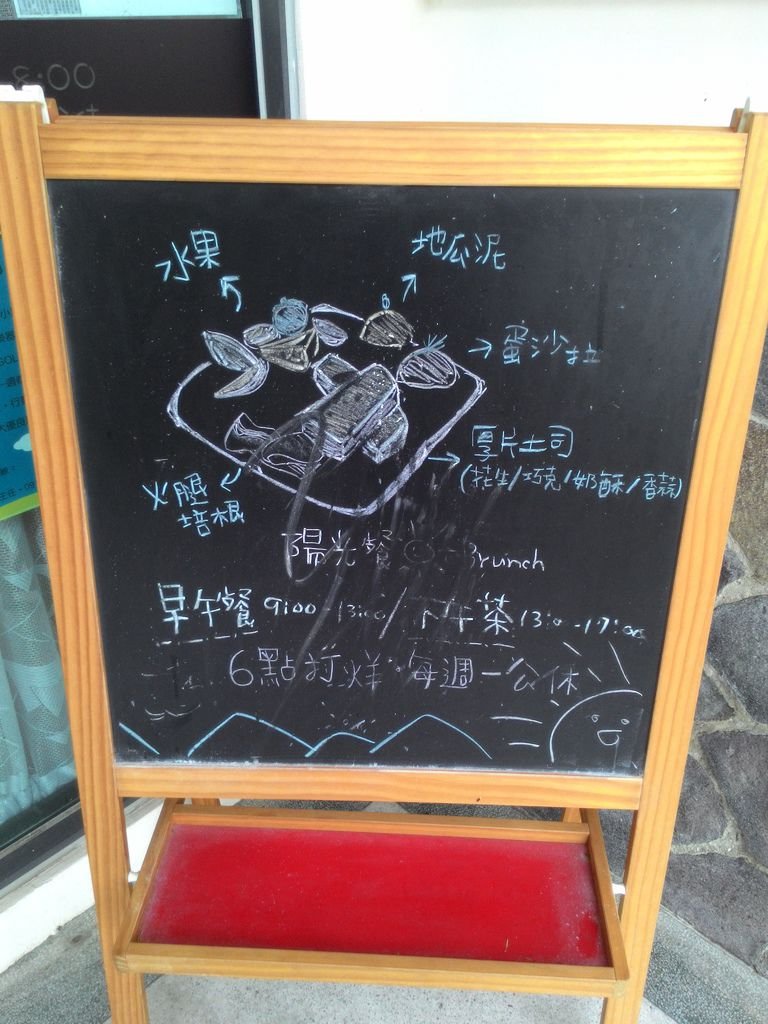 8:00
水果
地瓜泥
→蛋沙拉
厚片土司
(花生/巧克/奶酥/香蒜)
火腿
培根
陽光餐 Brunch
早午餐 9:00-13:00/下午茶 13:00-17:00
6點打烊 每週一公休